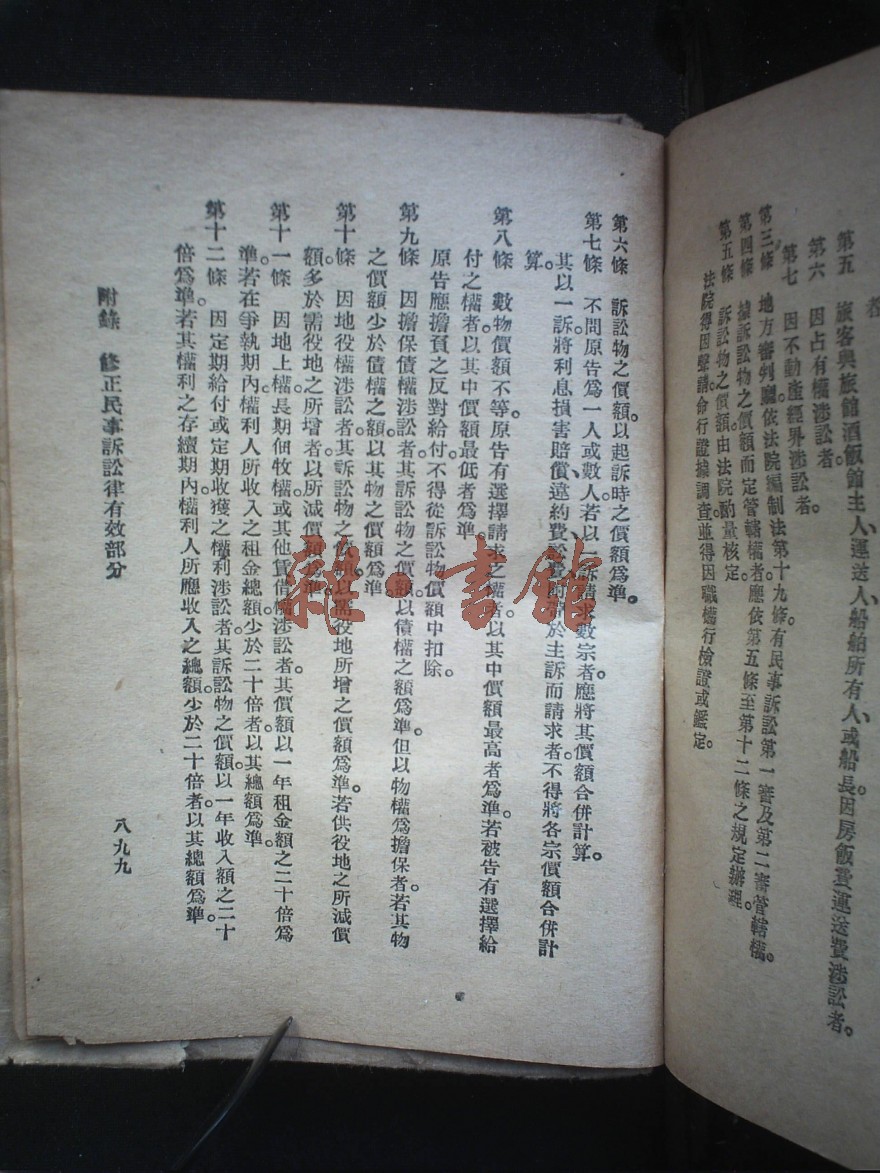 者
第五　旅客與旅館酒飯館主人、運送人、船舶所有人、或船長。因房飯費運送費涉訟者。
第六　因占有權涉訟者。
第七　因不動產經界涉訟者。
第三條　地方審判廳依法院編制法第十九條。有民事訴訟第一審及第二審管轄權。
第四條　據訴訟物之價額而定管轄權者。應依第五條至第十二條之規定辦理
第五條　訴訟物之價額由法院酌量核定
法院得因聲請。命行證據調查並得因職權行檢證或鑑定。
第六條　訴訟物之價額。以起訴時之價額爲準。
第七條　不問原告爲一人或數人。若以一訴請求數宗者。應將其價額合併計算。
其以一訴將利息損害賠償、違約費、訟費附帶於主訴而請求者。不得將各宗價額合併計
算。
第八條　數物價額不等。原告有選擇請求之權者。以其中價額最高者爲準。若被告有選擇給
付之權者。以其中價額最低者爲準
原告應擔負之反對給付。不得從訴訟物價額中扣除。
第九條　因擔保債權涉訟者。其訴訟物之價額。以債權之額爲準。但以物權爲擔保者。若其物
之價額少於債權之額。以其物之價額爲準。
第十條　因地役權涉訟者。其訴訟物之價額。以需役地所增之價額爲準。若供役地之所減價
額多於需役地之所增者。以所減價額爲準。
第十一條　因地上權。長期佃牧權。或其他賃借權涉訟者。其價額以一年租金額之二十倍爲
準。若在爭執期內。權利人所收入之租金總額。少於二十倍者。以其總額爲準。
第十二條　因定期給付或定期收獲之權利涉訟者。其訴訟物之價額。以一年收入額之二十
倍爲準。若其權利之存續期內。權利人所應收入之總額。少於二十倍者。以其總額爲準。
附錄　修正民事訴訟律有效部分
八九九
雜·書館